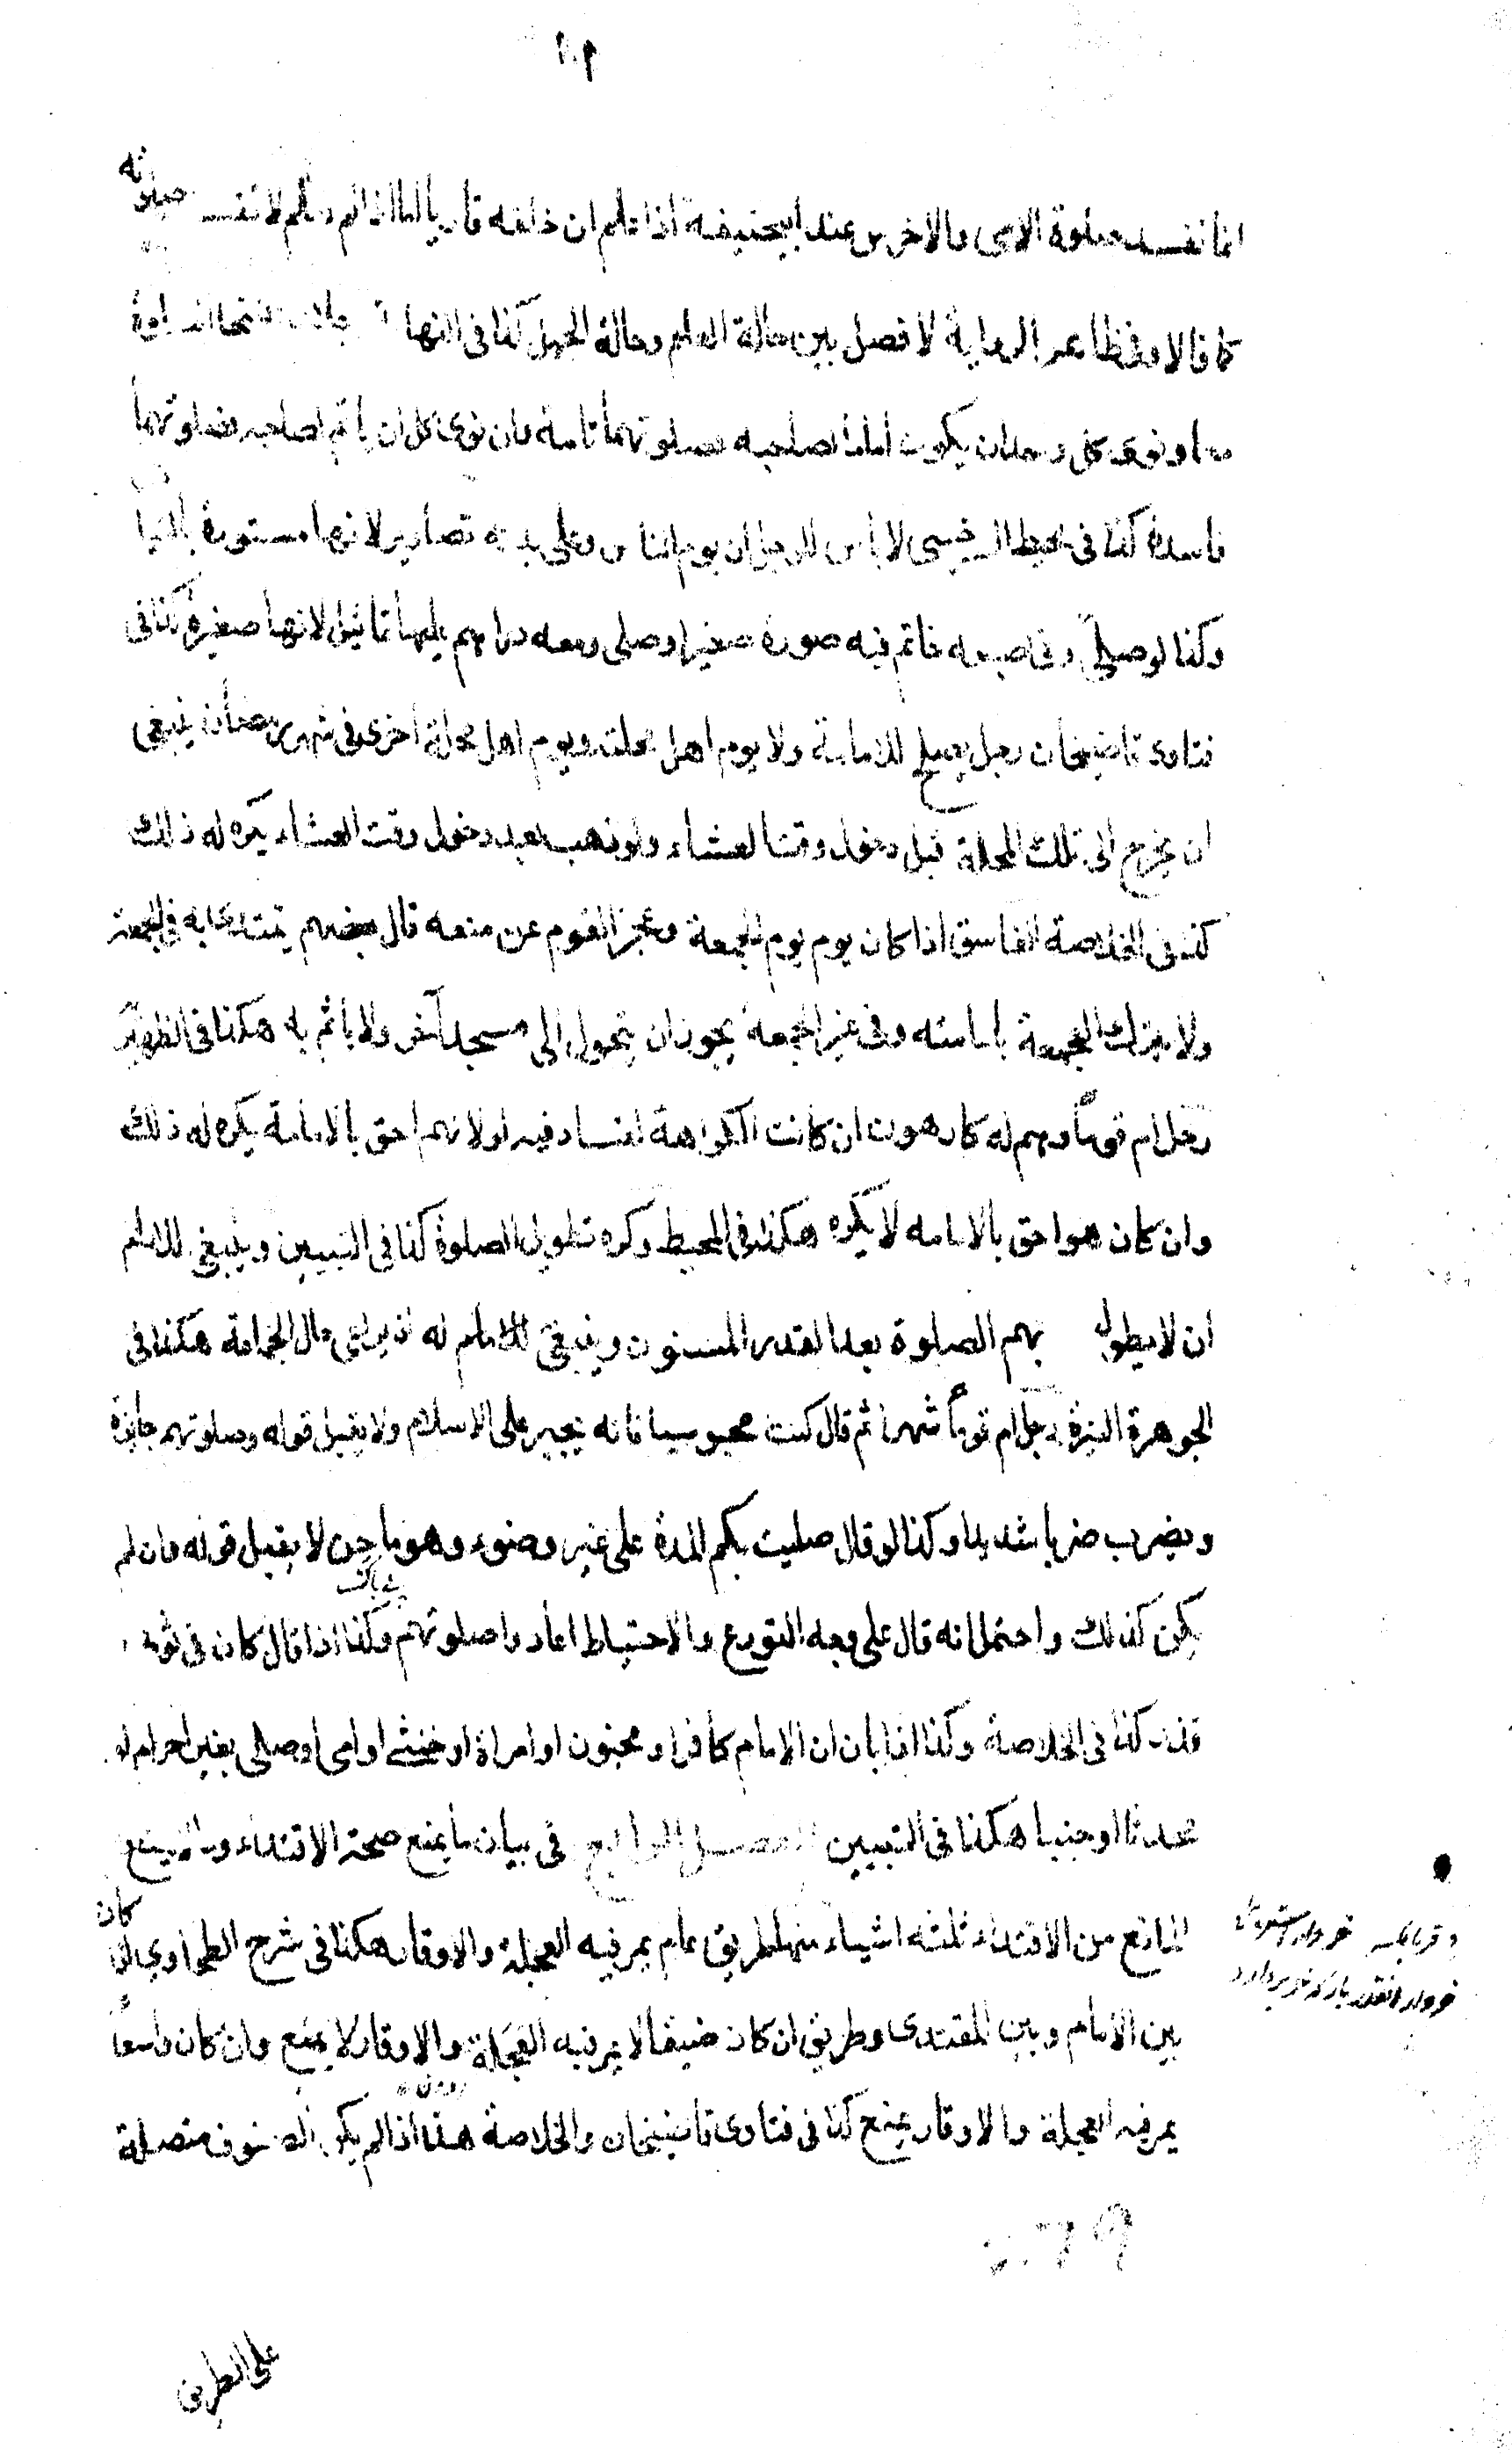 انما تفسد صلوة الامى والاخرس عند ابيحنيفة اذا علم ان خلفه قاريا اما اذا لم يعلم لا تفسد صلوته
كما قالا وفى ظاهر الرواية لا فصل بين حالة العلم وحالة الجهل كذا فى النهاية رجلان افتتحا الصلوة
معا ونوى كل واحد ان يكون اماما لصاحبه فصلوتهما تامة وان نوى كل ان ياتم لصاحبه فصلوتهما
فاسدة كذا فى محيط السرخسى لا باس للرجل ان يوم الناس وعلى يديه تصاوير لانها مستورة بالثياب
وكذا لو صلى وفى اصبعه خاتم فيه صورة صغيرة او صلى ومعه دراهم عليها تماثيل لانها صغيرة كذا فى
فتاوى قاضيخان رجل يصلح للامامة ولا يوم اهل محلته ويوم اهل محلة اخرى فى شهر رمضان ينبغى
ان يخرج الى تلك المحلة قبل دخول وقت العشاء ولو ذهب بعد دخول وقت العشاء يكره له ذلك
كذا فى الخلاصة الفاسق اذا كان يوم يوم الجمعة وعجز القوم عن منعه قال بعضهم يقتدى به فى الجمعة
ولا يترك الجمعة بامامته وفى غير الجمعة يجوز ان يتحول الى مسجد آخر ولا ياثم به هكذا فى الظهيرية
رجل ام قوماً وهم له كارهون ان كانت الكراهة لفساد فيه او لانهم احق بالامامة يكره له ذلك
وان كان هو احق بالامامه لا يكره هكذا فى المحيط وكره تطويل الصلوة كذا فى التبيين وينبغى للامام
ان لا يطول بهم الصلوة بعد القدر المسنون وينبغى للامام له ان يراعى حال الجماعة هكذا فى
الجوهرة النيرة رجل ام قوماً شهرا ثم قال كنت مجوسيا فانه يجبر على الاسلام ولا يقبل قوله وصلوتهم جايزة
ويضرب ضربا شديدا وكذا لو قال صليت بكم المدة على غير وضوء وهو ماجن لا يقبل قوله وان لم
يكن كذلك واحتمل انه قال على وجه التورع والاحتياط اعادوا صلوتهم وكذا اذا قال كان فى ثوبه
قذر كذا فى الخلاصة وكذا اذا بان ان الامام كافر او مجنون او امراة او خنثى او امى او صلى بغير احرام او
محدثا او جنبا هكذا فى التبيين الفصل الرابع فى بيان ما يمنع صحة الاقتداء وما لا يمنع
المانع من الاقتداء ثلثه اشياء منها طريق عام يمر فيه العجلة والاوقار هكذا فى شرح الطحاوى اذا كان
بين الامام وبين المقتدى طريق ان كان ضيقا لا يمر فيه العجلة والاوقار لا يمنع وان كان واسعاً
يمر فيه العجلة والاوقار يمنع كذا فى فتاوى قاضيخان والخلاصة هذا اذا لم يكن الصفوف متصلة
على الطريق